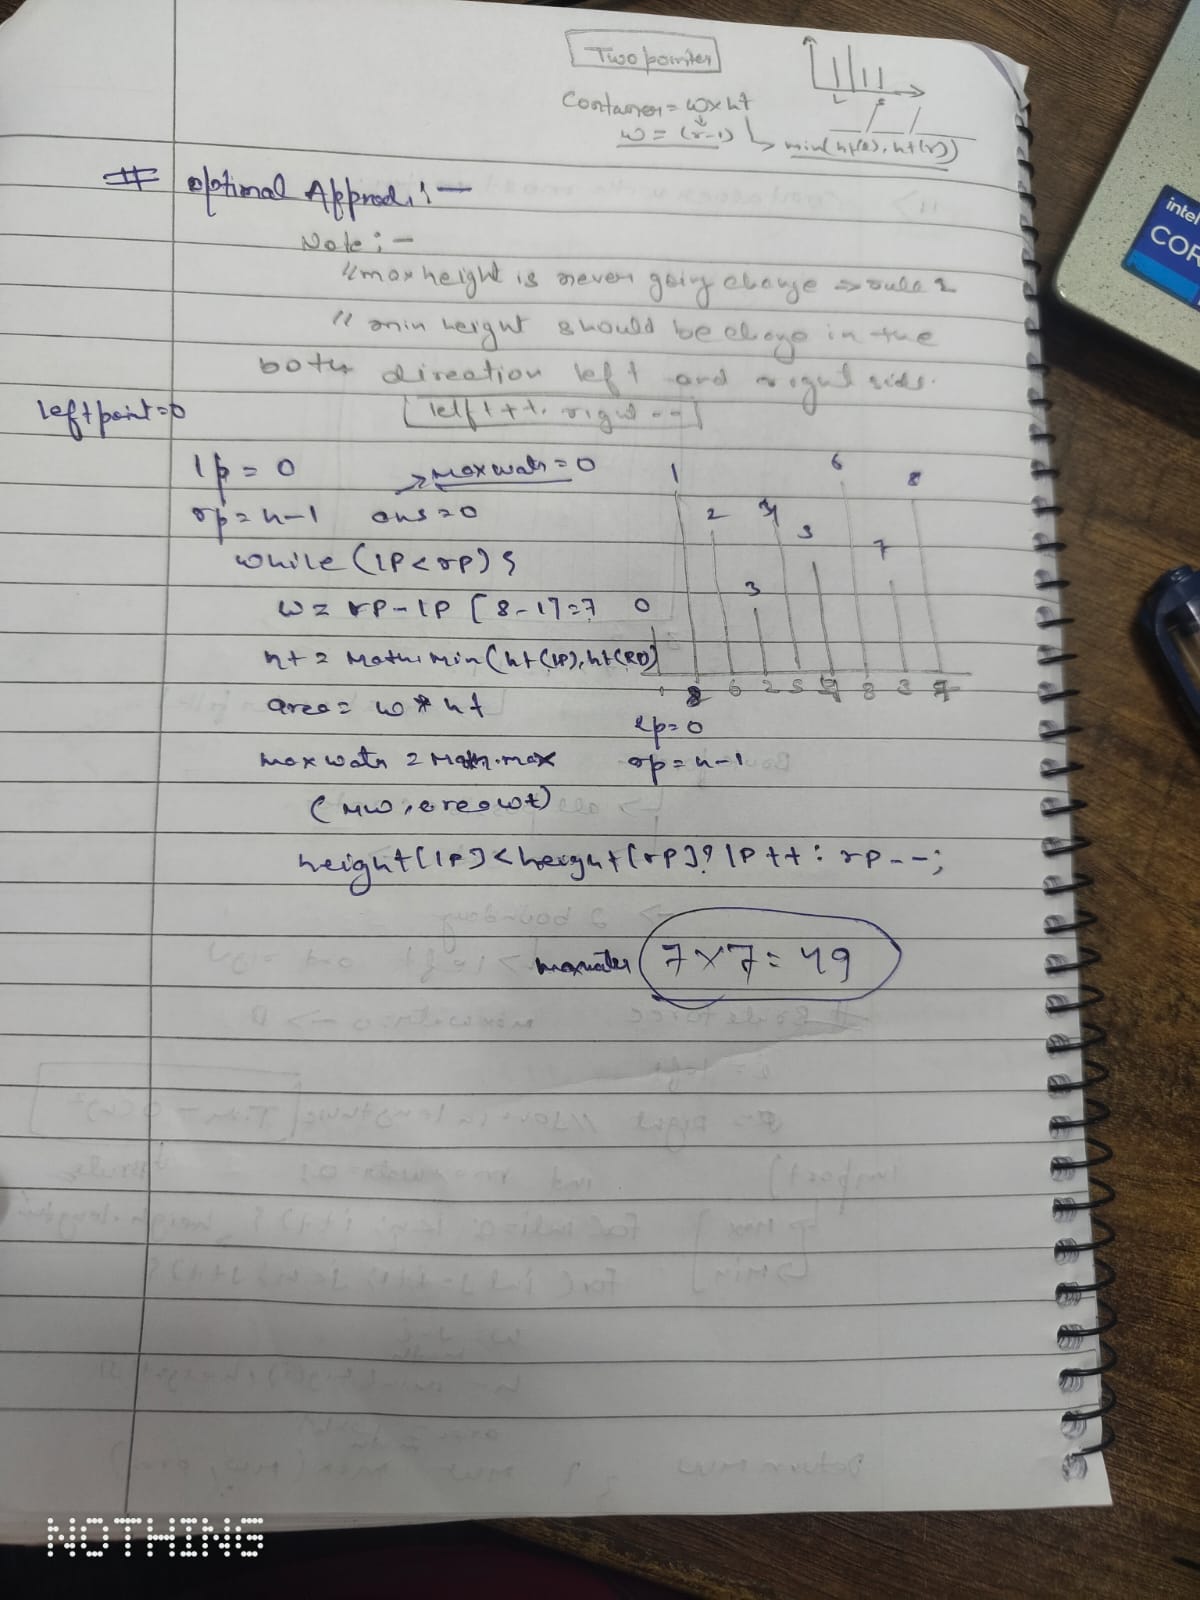 Two pointer
Container = w x ht
w = (r-l)
min(ht(l), ht(r))
L r
# optimal Approch :-
Note :-
// max height is never going change => rule 1
// min height should be change in the
both direction left and right side.
left++, right --
left point = 0
lp = 0 -> maxwatr = 0
rp = n-1 ans = 0
while (lp < rp) {
w = rp - lp [8-1] = 7
ht = Math.min(ht(lP), ht(RP)
area = w * ht
maxwatr = Math.max
(mw, areawt)
height[lP] < height[rP] ? lP++ : rP--;
0 1 2 3 4 5 6 7 8
1 8 6 2 5 4 8 3 7
lp = 0
rp = n-1
maxwater 7 x 7 = 49
intel
COR
NOTHING